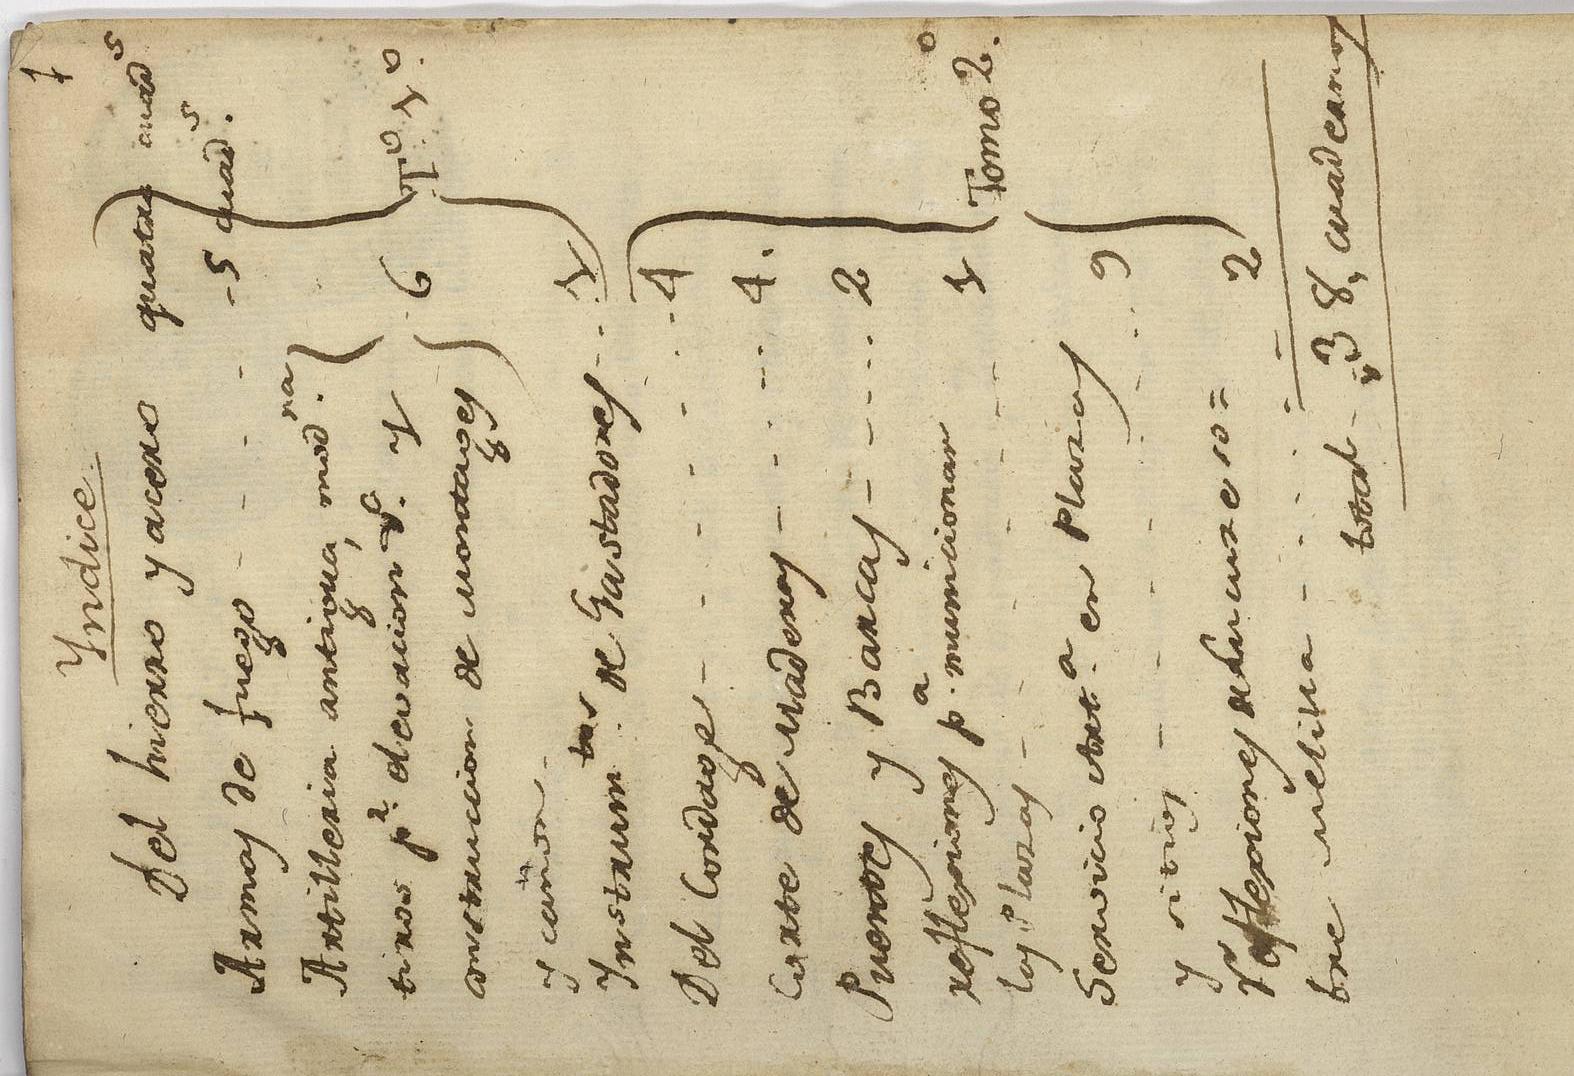 1
Yndice
Del hierro y acero quatro cuad.s
Armas de fuego - - - - - 5 cuad.s
Artilleria antigua, mod.na
tiros p.a elevacion &.a y 6 T.o 1.o
construccion de montages
y carros -
Instrum.tos de Gastadores - - - 1
Del Cordage - - - - - - - 4
Corte de Maderas - - - - - 4.
Puentes y Barcas - - - - - 2 Tomo 2.o
reflexiones p.a municionar
las Plazas - - - - - - - 1
Servicio Art.a en Plazas
y sitios - - - - - - - 9
Reflexiones
bre - - - - - - - 2
total - 38, cuadernos